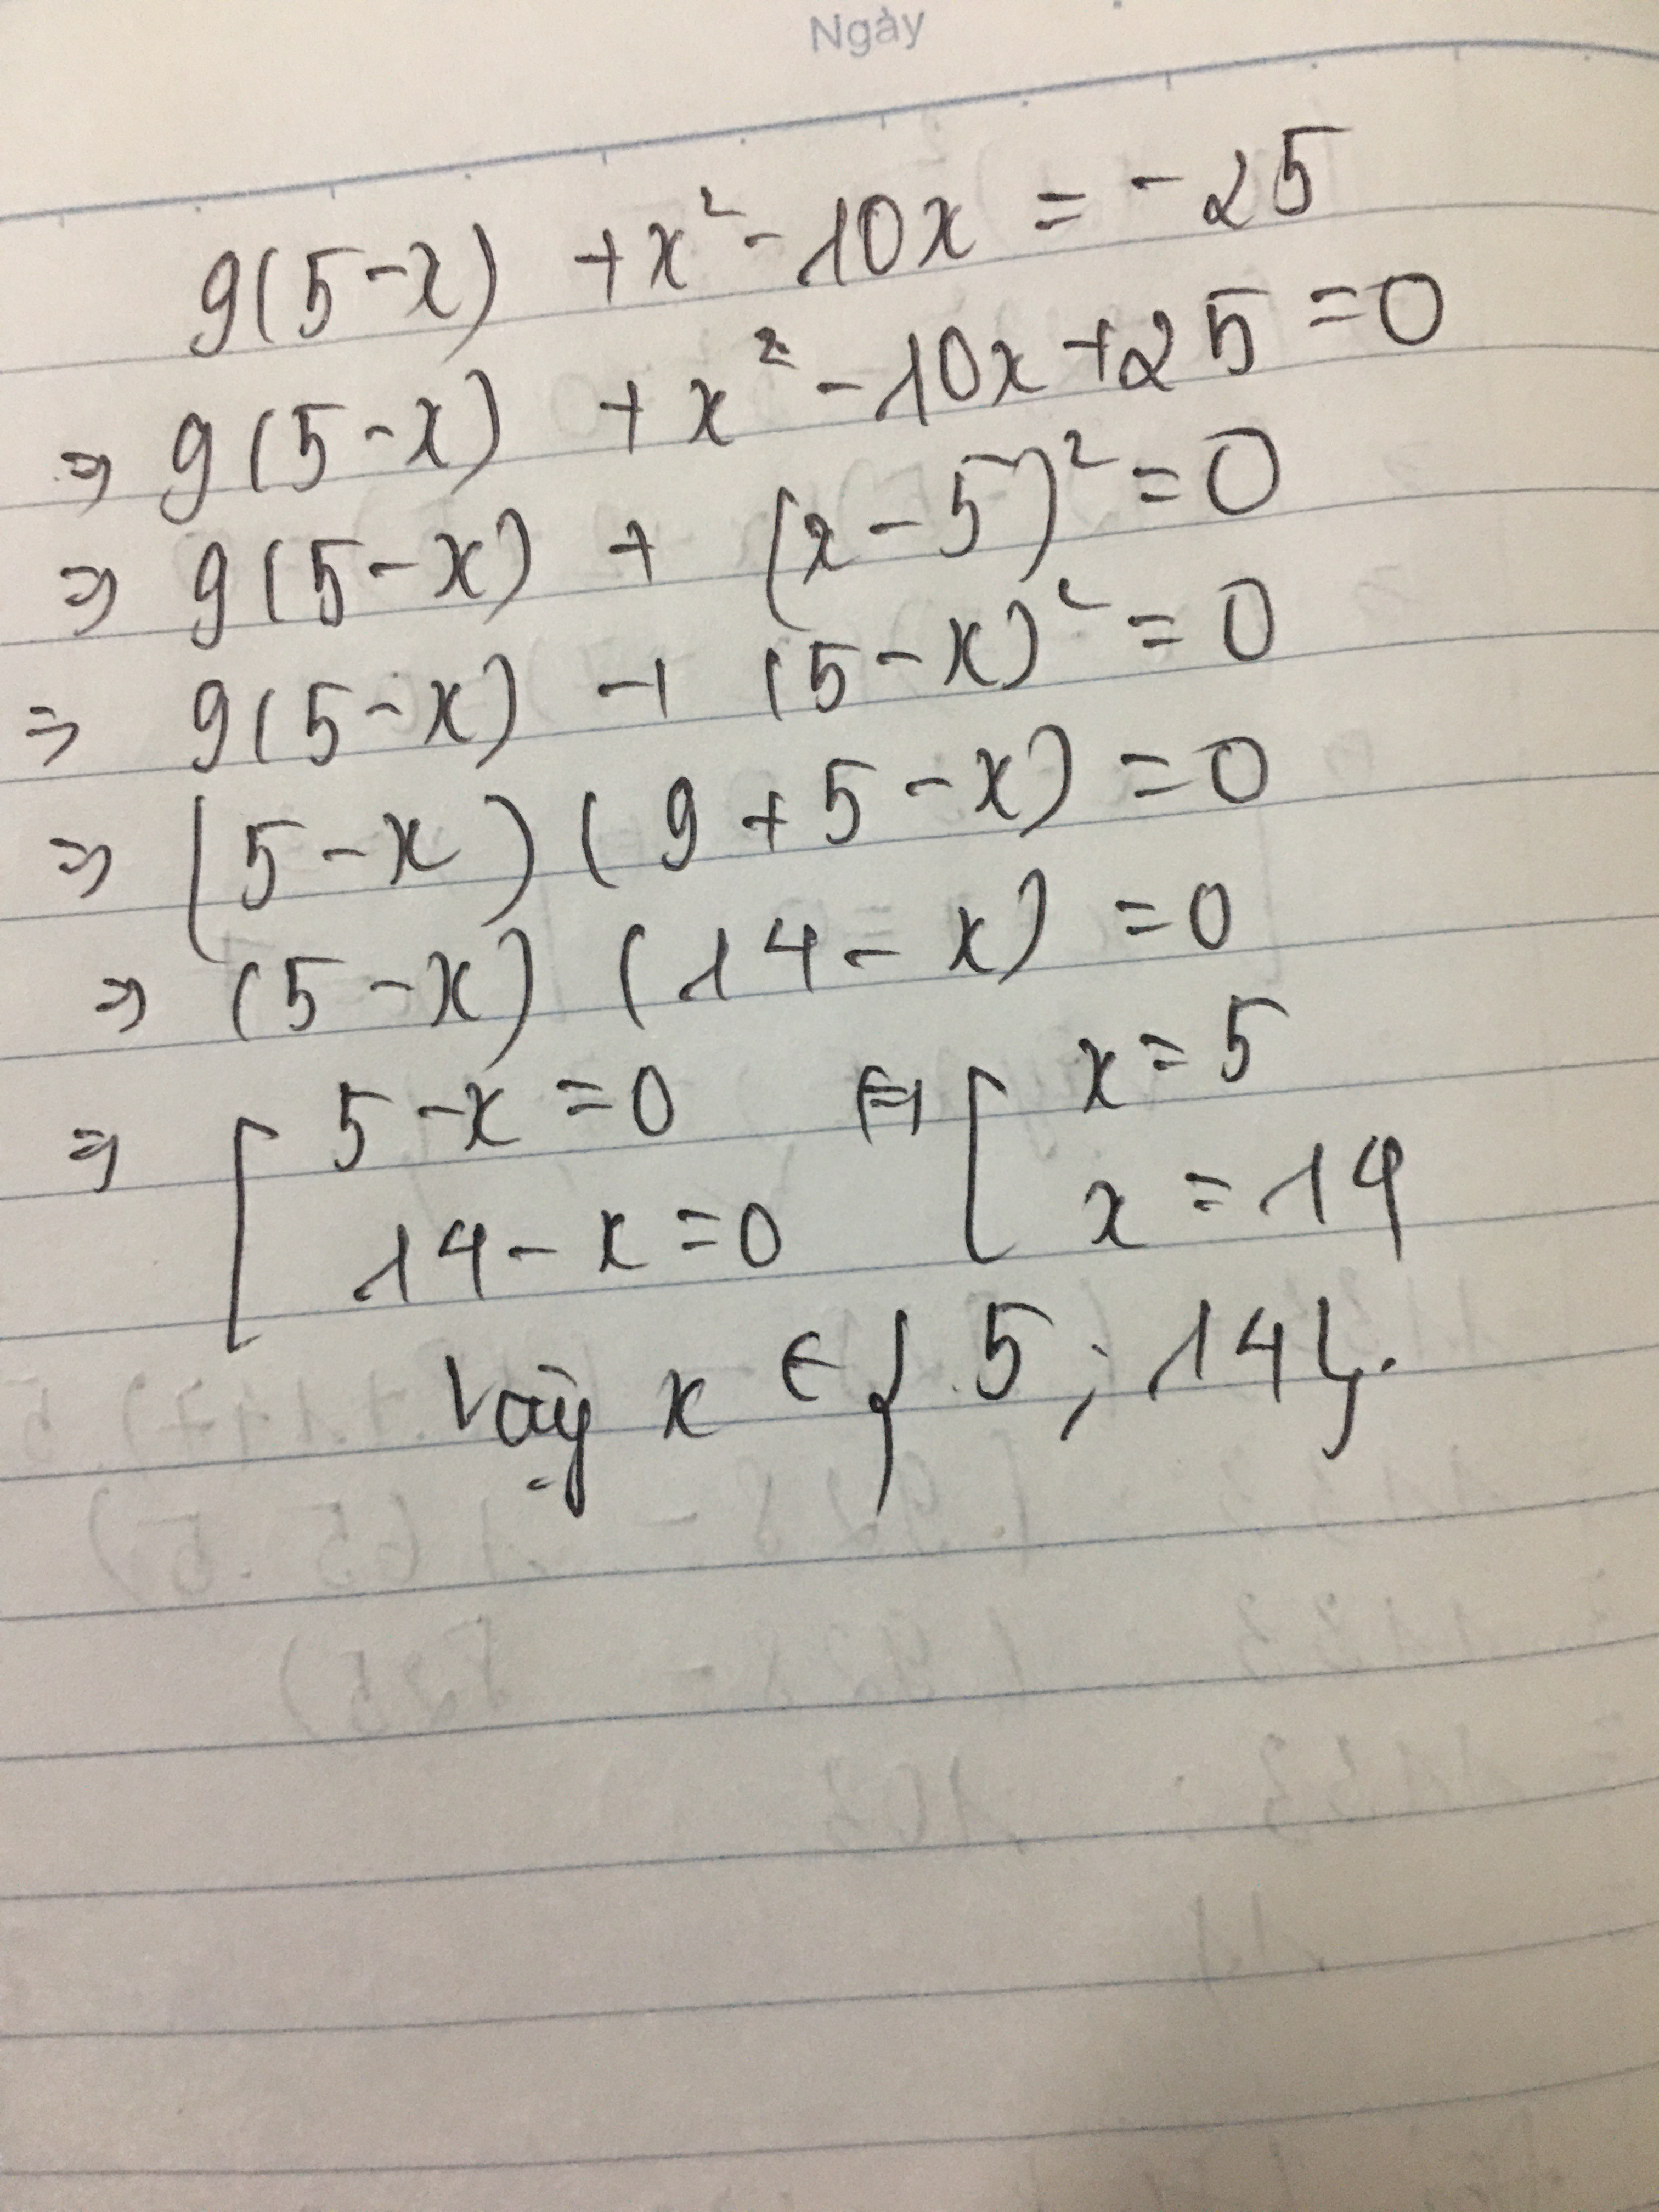 Ngày
9(5-x) +x²-10x = -25
⇒ 9(5-x) + x² -10x+25=0
⇒ 9(5-x) + (x-5)²=0
⇒ 9(5-x) + (5-x)²=0
⇒ (5-x)(9+5-x)=0
⇒ (5-x) (14-x) =0
⇒ [ 5-x=0 ⇔ [ x=5
14-x=0 x=14
Vậy x ∈ { 5 ; 14}.